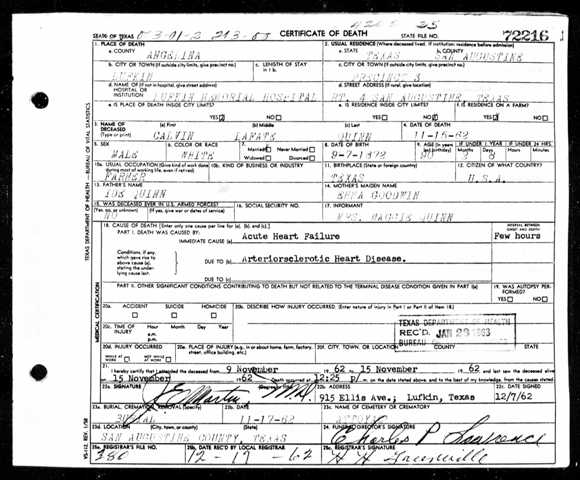 STATE OF TEXAS
CERTIFICATE OF DEATH
STATE FILE NO.
72216
1. PLACE OF DEATH
a. COUNTY
ANGELINA
2. USUAL RESIDENCE (Where deceased lived. If institution: residence before admission)
a. STATE
TEXAS
b. COUNTY
SAN AUGUSTINE
b. CITY OR TOWN (If outside city limits, give precinct no.)
LUFKIN
c. LENGTH OF STAY
in 1 b.
c. CITY OR TOWN (If outside city limits, give precinct no.)
PRECINCT 3
d. NAME OF (If not in hospital, give street address)
HOSPITAL OR
INSTITUTION
LUFKIN MEMORIAL HOSPITAL
d. STREET ADDRESS (If rural, give location)
RT. 4 SAN AUGUSTINE TEXAS
e. IS PLACE OF DEATH INSIDE CITY LIMITS?
YES NO
e. IS RESIDENCE INSIDE CITY LIMITS?
YES NO
f. IS RESIDENCE ON A FARM?
YES NO
3. NAME OF
DECEASED
(Type or print)
(a) First
CALVIN
(b) Middle
LAFATE
(c) Last
QUINN
4. DATE OF DEATH
11-15-62
5. SEX
MALE
6. COLOR OR RACE
WHITE
7.
Married Never Married
Widowed Divorced
8. DATE OF BIRTH
9-7-1872
9. AGE (In years
90
IF UNDER 1 YEAR
Months Days
2 8
IF UNDER 24 HRS.
Hours Minutes
10a. USUAL OCCUPATION (Give kind of work done
during most of working life, even if retired)
FARMER
10b. KIND OF BUSINESS OR INDUSTRY
11. BIRTHPLACE (State or foreign country)
TEXAS
12. CITIZEN OF WHAT COUNTRY?
U.S.A.
13. FATHER'S NAME
JOE QUINN
14. MOTHER'S MAIDEN NAME
GOODWIN
15. WAS DECEASED EVER IN U.S. ARMED FORCES?
(If yes, give war or dates of service)
NO
16. SOCIAL SECURITY NO.
17. INFORMANT
MRS. MAGGIE QUINN
18. CAUSE OF DEATH [Enter only one cause per line for (a), (b), and (c).]
PART I. DEATH WAS CAUSED BY:
IMMEDIATE CAUSE (a)
Acute Heart Failure
INTERVAL BETWEEN
ONSET AND DEATH
Few hours
Conditions, if any,
which gave rise to
above cause (a),
stating the under-
lying cause last.
DUE TO (b)
Arteriorsclerotic Heart Disease.
DUE TO (c)
PART II. OTHER SIGNIFICANT CONDITIONS CONTRIBUTING TO DEATH BUT NOT RELATED TO THE TERMINAL DISEASE CONDITION GIVEN IN PART I (a)
19. WAS AUTOPSY PER-
FORMED?
YES NO
20a. ACCIDENT SUICIDE HOMICIDE
20b. DESCRIBE HOW INJURY OCCURRED. (Enter nature of injury in Part I or Part II of item 18.)
20c. TIME OF
INJURY
Hour Month Day Year
a.m.
p.m.
TEXAS DEPARTMENT OF HEALTH
REC'D. JAN 23 1963
BUREAU
20d. INJURY OCCURRED
WHILE AT WORK NOT WHILE AT WORK
20e. PLACE OF INJURY (e.g. in or about home, farm, factory,
street, office building, etc.)
20f. CITY, TOWN, OR LOCATION
COUNTY
STATE
21.
I hereby certify that I attended the deceased from 9 November 19 62 to 15 November 19 62 and last saw the deceased alive
on 15 November 19 62 Death occurred at 12:25 p. m. on the date stated above, and to the best of my knowledge, from the causes stated.
22a. SIGNATURE
(Degree or title)
22b. ADDRESS
915 Ellis Ave.; Lufkin, Texas
22c. DATE SIGNED
12/7/62
23a. BURIAL, CREMATION, REMOVAL (Specify)
BURIAL
23b. DATE
11-17-62
23c. NAME OF CEMETERY OR CREMATORY
23d. LOCATION
SAN AUGUSTINE COUNTY, TEXAS
24. FUNERAL DIRECTOR'S SIGNATURE
Charles P. Lawrence
25a. REGISTRAR'S FILE NO.
25b. DATE REC'D BY LOCAL REGISTRAR
12-17-62
25c. REGISTRAR'S SIGNATURE
TEXAS DEPARTMENT OF HEALTH — BUREAU OF VITAL STATISTICS
MEDICAL CERTIFICATION